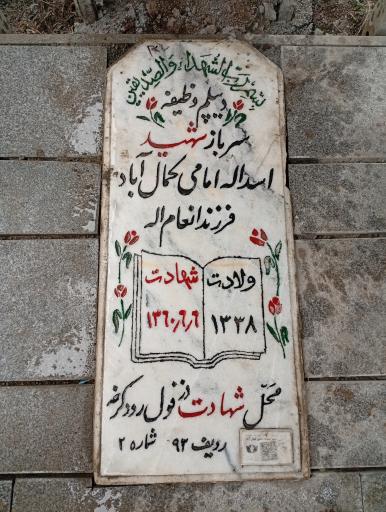 بسم رب الشهداء و الصدیقین
دیپلم وظیفه
سرباز شهید
اسداله امامی کمال آباد
فرزند انعام اله
ولادت
۱۳۳۸
شهادت
۱۳۶۰،۶،۶
محل شهادت دزفول رود کرخه
ردیف ۹۲ شماره ۲